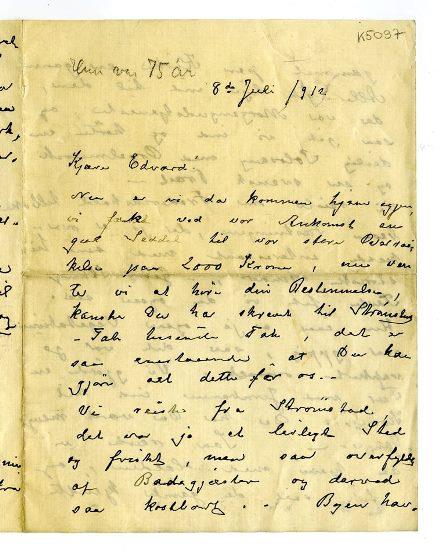 K5097
Hun var 75 år
8de Juli /912
Kjære Edvard.
Nu er vi da kommen hjem igjen,
vi fik ved vor Ankomst en
gul Seddel til vor store Overras-
kelse paa 2000 Kroner, nu ven
ter vi at høre din Bestemmelse,
kanske Du har skrevet til Strömstad
- Tak tusende Tak, det er
saa enestaaende at Du kan
gjøre alt dette for os. -
Vi reiste fra Strömstad,
det var jo et deiligt Sted
og friskt, men saa overfyldt
af Badegjæster og derved
saa kostbart. - Byen hav-